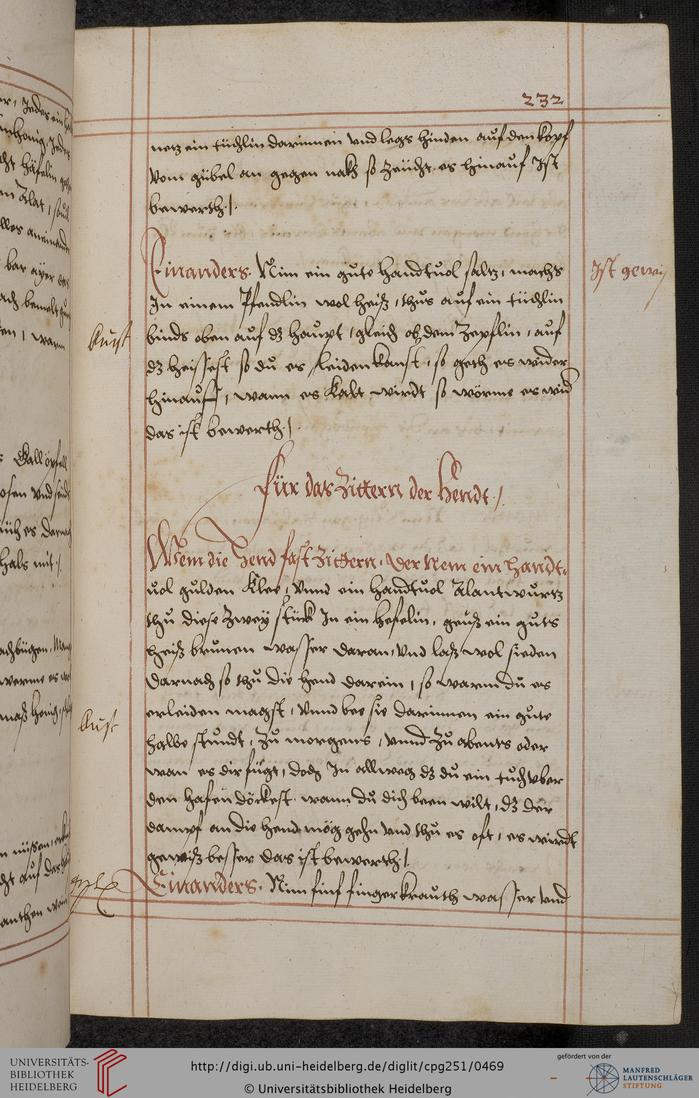 232
netz ein tüchlin darinnen vnd legs hinden auf den kopf
vom gübel an gegen nakh so zeücht es hinauf Ist
bewerth /.
Ein anders. Nim ein gute handtuol saltz, machs
Ist gewiß
In einem Pfendlin wol heiß, thus auf ein tüchlin
binds oben auf dz haupt, gleich ob dem Zepflin, auf
dz heissest so du es leiden kanst, so geth es wider
hinauff, wann es kalt wirdt so wörme es wid
das ist bewerth /.
Für das Zittern der Hendt /.
Wem die Hend fast Zittern. der Nem ein handt,
uol gulden Klee, vnnd ein handtuol Alantwurtz
thu diese Zwey stück In ein hefelin, geuß ein guts
heiß brunnen wasser daran, vnd laß wol sieden
darnach so thu die hend darein, so warm du es
erleiden magst, vnnd bee sie darinnen ein gute
halbe stundt, Zu morgens, vnnd Zu abents oder
wan es dir fügt, doch In allweg dz du ein tuch vber
den hafen döckest wann du dich been wilt, dz der
dampf an die hend mög gehn vnd thu es oft, es wirdt
gewiß besser das ist bewerth /.
Ein anders. Nim finf fingerkrauth wasser vnd
UNIVERSITÄTS-
BIBLIOTHEK
HEIDELBERG
http://digi.ub.uni-heidelberg.de/diglit/cpg251/0469
© Universitätsbibliothek Heidelberg
gefördert von der
MANFRED
LAUTENSCHLÄGER
STIFTUNG